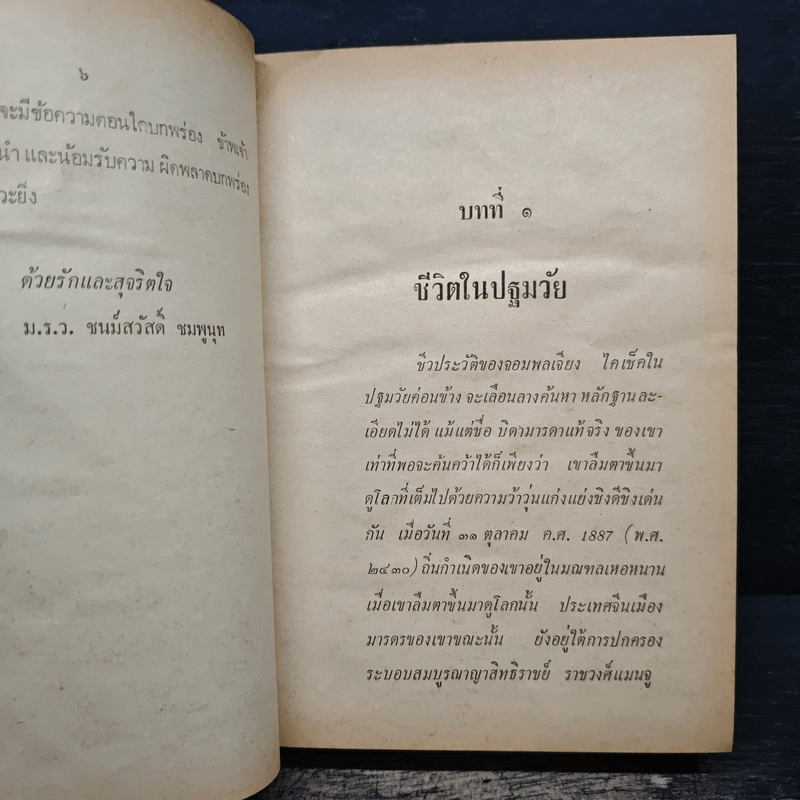 ๖
จะมีข้อความตอนใดบกพร่อง ข้าพเจ้า
นำ และน้อมรับความ ผิดพลาดบกพร่อง
วะยิ่ง
ด้วยรักและสุจริตใจ
ม.ร.ว. ชนม์สวัสดิ์ ชมพูนุท
บทที่ ๑
ชีวิตในปฐมวัย
ชีวประวัติของจอมพลเจียง ไคเช็คใน
ปฐมวัยค่อนข้าง จะเลือนลางค้นหา หลักฐานละ-
เอียดไม่ได้ แม้แต่ชื่อ บิดามารดาแท้จริง ของเขา
เท่าที่พอจะค้นคว้าได้ก็เพียงว่า เขาลืมตาขึ้นมา
ดูโลกที่เต็มไปด้วยความว้าวุ่นแก่งแย่งชิงดีชิงเด่น
กัน เมื่อวันที่ ๓๑ ตุลาคม ค.ศ. 1887 (พ.ศ.
๒๔๓๐) ถิ่นกำเนิดของเขาอยู่ในมณฑลเหอหนาน
เมื่อเขาลืมตาขึ้นมาดูโลกนั้น ประเทศจีนเมือง
มารดรของเขาขณะนั้น ยังอยู่ใต้การปกครอง
ระบอบสมบูรณาญาสิทธิราชย์ ราชวงศ์แมนจู